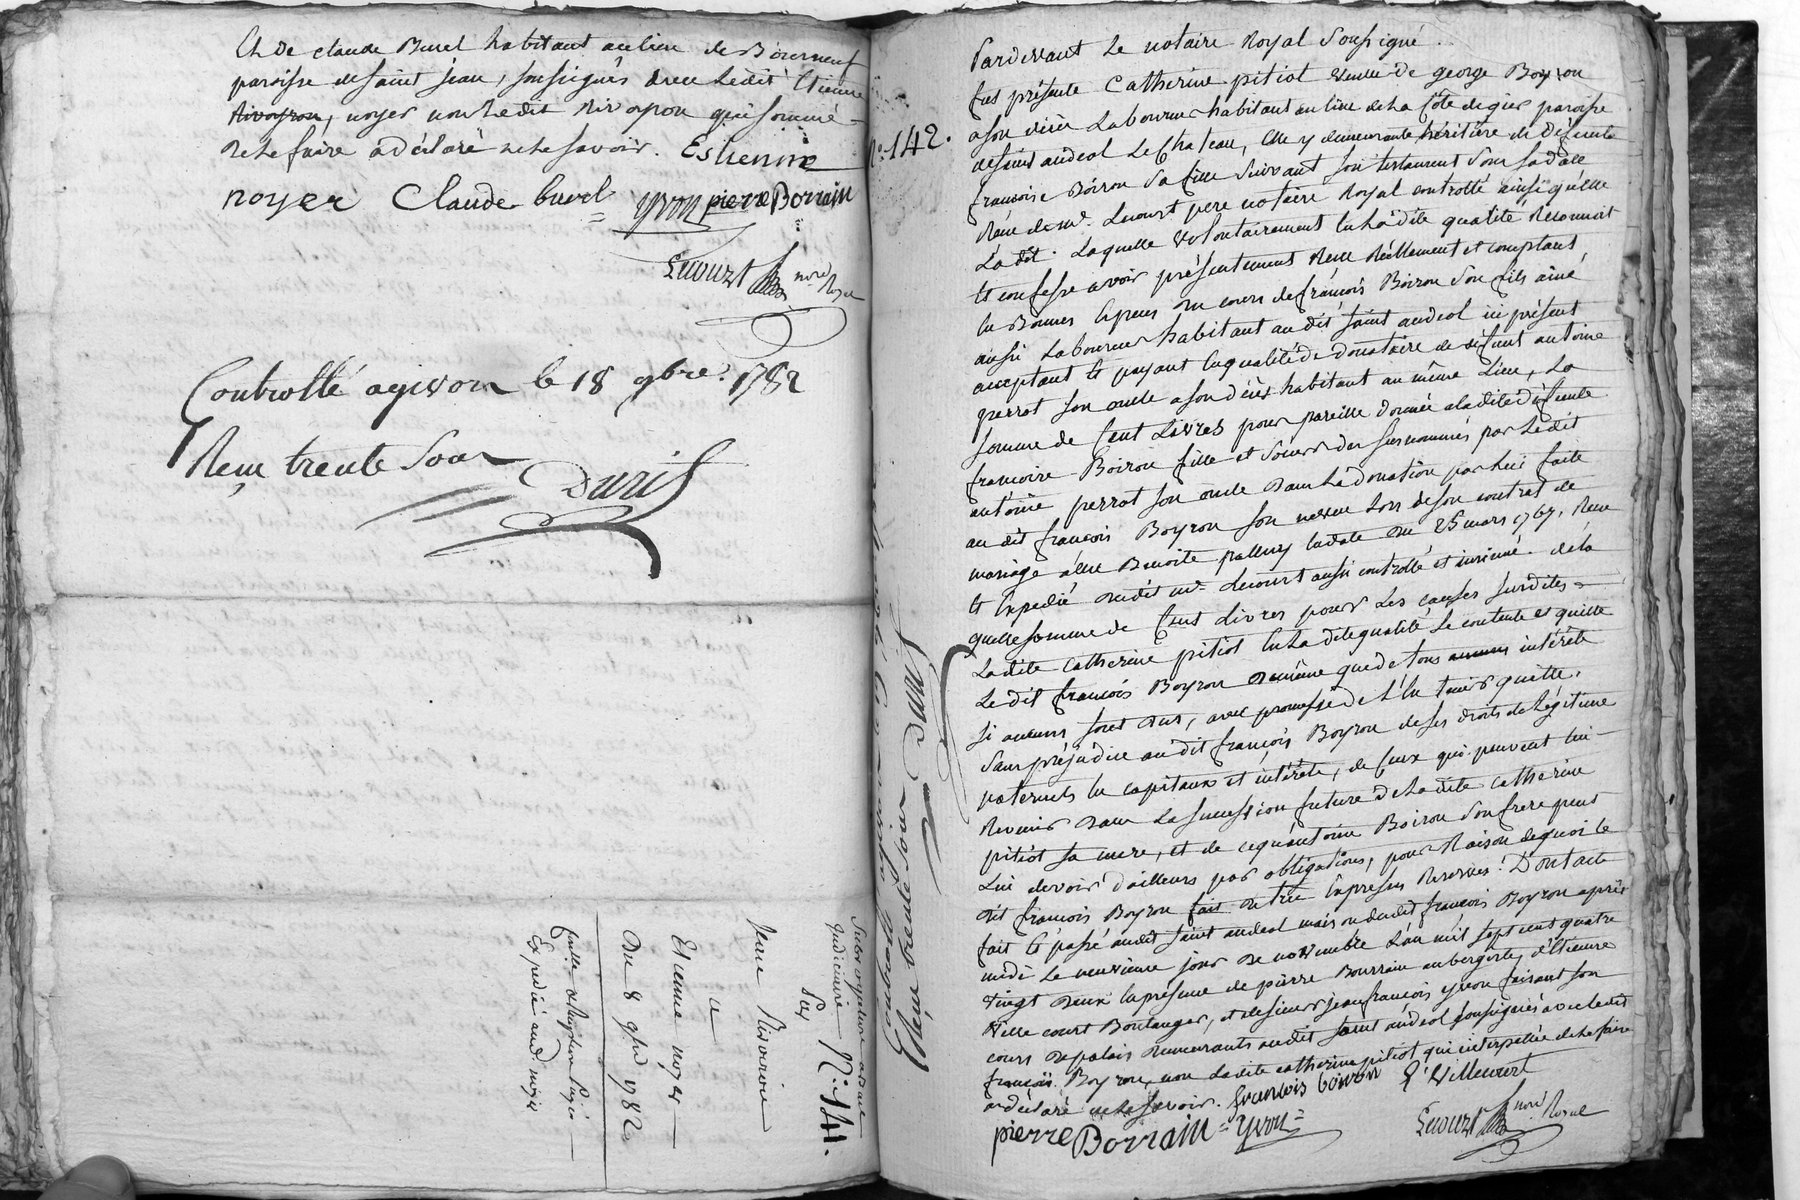 Et de claude Burel habitant au lieu de Bourneuf
paroisse de saint jean, soussignés avec ledit Etienne
Rivoyron, noyer non ledit Rivoyron qui sommé
de le faire a déclaré ne le savoir. Estienne
noyer Claude burel yvon pierre Borrain
Lecourt nore Royal
Controllé a givors le 18 9bre. 1782
Reçu trente sous
Duris
Subrogation avant
judiciaire N. 141.
Par
Jeane Rivoiron
a
Etienne noyer
Du 8 9bre 1782
Expedié aud noyer
N. 142.
Pardevant le notaire Royal soussigné
fut présente Catherine pitiot veuve de george Boyron
a son vivant Laboureur habitant au lieu de la Côte de gier paroisse
de saint andeol Le chateau, elle y demeurante héritière de défunte
françoise Boiron sa fille suivant son testament sous sa date
Reçu de me. Lecourt pere notaire Royal controllé ainsi qu'elle
La dit. Laquelle volontairement en la dite qualité Reconnoit
et confesse avoir présentement Reçu Réellement et comptant
en Bonnes Especes au cours de françois Boiron son fils ainé
aussi Laboureur habitant au dit saint andeol ici présent
acceptant et payant en qualité de donataire de défunt antoine
perrot son oncle a son décès habitant au même Lieu, La
somme de Cent Livres pour pareille donnée a la dite défunte
françoise Boiron fille et soeur des surnommés par Ledit
antoine perrot son oncle dans La donation par lui faite
au dit françois Boyron son neveu Lors de son contrat de
mariage avec Benoite palluy en date du 25 mars 1767. Reçu
et Expedié dudit me Lecourt aussi controllé et insinué. de la
quelle somme de Cent Livres pour Les causes susdites
Ladite Catherine pitiot en La dite qualité se contente et quitte
Le dit françois Boyron de même que de tous intérêts
si aucuns sont dus, avec promesse de L'en tenir quitte.
sans préjudice au dit françois Boyron de ses droits de Légitime
paternels en capitaux et intérêts, de ceux qui peuvent lui
Revenir dans La succession future de La dite Catherine
pitiot sa mere, et de ce qu'antoine Boiron son frere peut
Lui devoir d'ailleurs par obligations, pour Raison de quoi le
dit françois Boyron fait de très Expresses Reserves! Dont acte
fait et passé audit saint andeol maison dudit françois Boyron après
midi Le neuvieme jour de novembre L'an mil sept cent quatre
vingt deux en présence de pierre Bourrain aubergiste, d'Etienne
Ville court Boulanger, et de sieur jean françois yvon faisant son
cours de palais demeurants audit saint andeol soussignés avec ledit
françois Boyron, non Ladite catherine pitiot qui interpellée de le faire
a déclaré ne le savoir. françois boiron E. Villecourt
pierre Borrain yvon Lecourt nore Royal
Controllé a givors le 18 9bre 1782
Reçu trente sous Duris